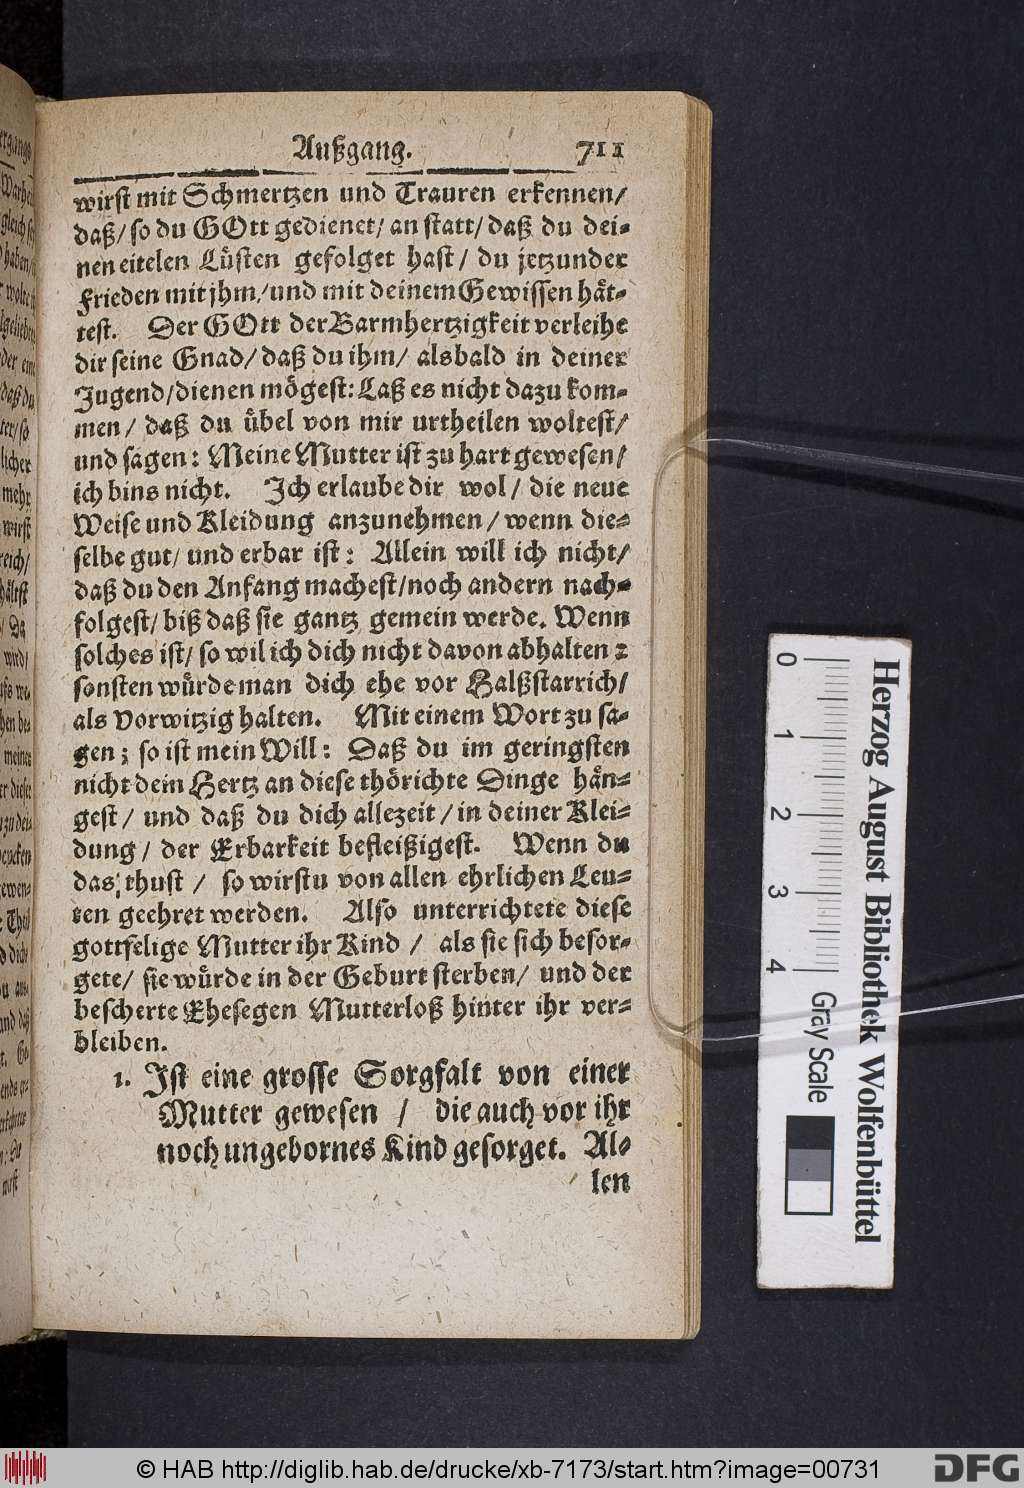 Außgang. 711
wirst mit Schmertzen und Trauren erkennen/
daß/ so du GOtt gedienet/ an statt/ daß du dei-
nen eitelen Lüsten gefolget hast/ du jetzunder
Frieden mit jhm/ und mit deinem Gewissen hät-
test. Der GOtt der Barmhertzigkeit verleihe
dir seine Gnad/ daß du ihm/ alsbald in deiner
Jugend/ dienen mögest: Laß es nicht dazu kom-
men/ daß du übel von mir urtheilen woltest/
und sagen: Meine Mutter ist zu hart gewesen/
ich bins nicht. Ich erlaube dir wol/ die neue
Weise und Kleidung anzunehmen/ wenn die-
selbe gut/ und erbar ist: Allein will ich nicht/
daß du den Anfang machest/ noch andern nach-
folgest/ biß daß sie gantz gemein werde. Wenn
solches ist/ so wil ich dich nicht davon abhalten:
sonsten würde man dich ehe vor Halßstarrich/
als Vorwitzig halten. Mit einem Wort zu sa-
gen; so ist mein Will: Daß du im geringsten
nicht dem Hertz an diese thörichte Dinge hän-
gest/ und daß du dich allezeit/ in deiner Klei-
dung/ der Erbarkeit befleißigest. Wenn du
das thust/ so wirstu von allen ehrlichen Leu-
ten geehret werden. Also unterrichtete diese
gottselige Mutter ihr Kind/ als sie sich besor-
gete/ sie würde in der Geburt sterben/ und der
bescherte Ehesegen Mutterloß hinter ihr ver-
bleiben.
1. Ist eine grosse Sorgfalt von einer
Mutter gewesen/ die auch vor ihr
noch ungebornes Kind gesorget. Al-
len
0 1 2 3 4
Gray Scale
Herzog August Bibliothek Wolfenbüttel
© HAB http://diglib.hab.de/drucke/xb-7173/start.htm?image=00731
DFG